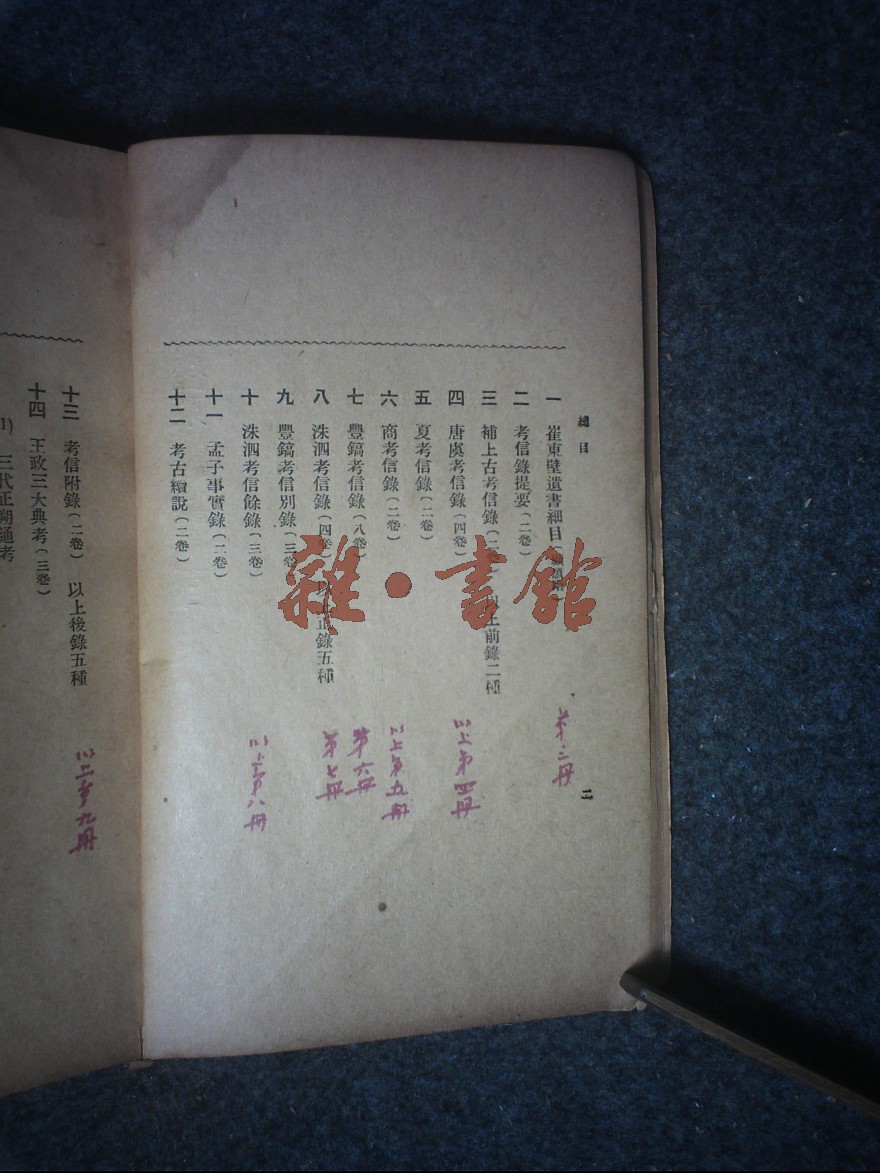 細目
一 崔東壁遺書細目
二 考信錄提要(二卷)
三 補上古考信錄(二 以上前錄二種
四 唐虞考信錄(四卷)
五 夏考信錄(二卷)
六 商考信錄(二卷)
七 豐鎬考信錄(八卷)
八 洙泗考信錄(四卷) 以上正錄五種
九 豐鎬考信別錄(三卷)
十 洙泗考信餘錄(三卷)
十一 孟子事實錄(二卷)
十二 考古續說(二卷)
二
第三冊
以上第四冊
以上第五冊
第六冊
第七冊
以上第八冊
十三 考信附錄(二卷) 以上後錄五種
以上第九冊
十四 王政三大典考(三卷)
1) 三代正朔通考
雜·書館